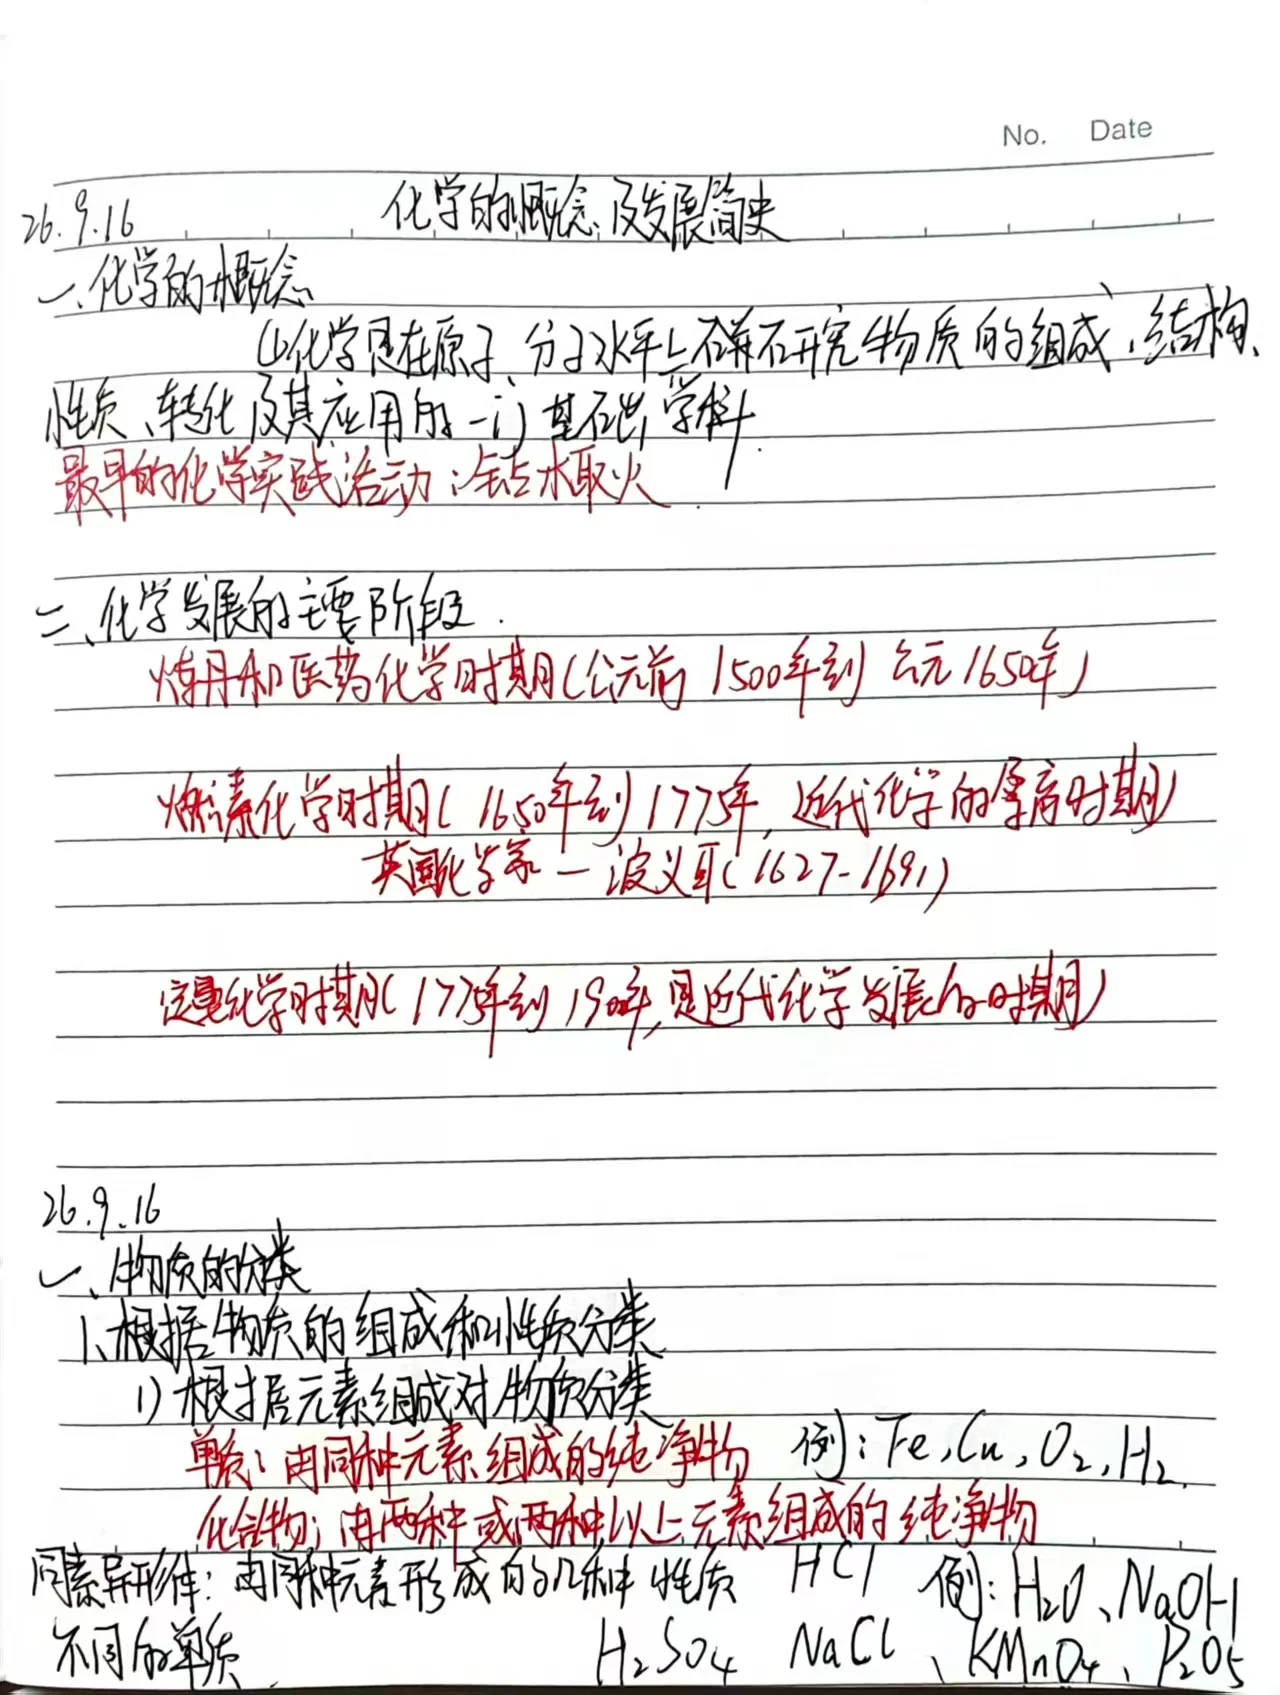 No. Date
26.9.16 化学的概念及发展简史
一、化学的概念
(1)化学是在原子、分子水平上研究物质的组成、结构、
性质、转化及其应用的一门基础学科.
最早的化学实践活动:钻木取火.
二、化学发展的主要阶段.
炼丹和医药化学时期(公元前1500年到公元1650年)
燃素化学时期(1650年到1775年,近代化学的孕育时期)
英国化学家—波义耳(1627-1691)
定量化学时期(1775年到1900年,是近代化学发展的时期)
26.9.16
一、物质的分类
1、根据物质的组成和性质分类
1)根据元素组成对物质分类
单质:由同种元素组成的纯净物 例:Fe,Cu,O₂,H₂.
化合物:由两种或两种以上元素组成的纯净物
同素异形体:由同种元素形成的几种性质 HCl 例:H₂O、NaOH
不同的单质. H₂SO₄ NaCl、KMnO₄、P₂O₅